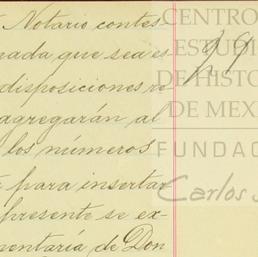 Notario contes
nada que sea es
disposiciones re
agregarán al
los números
para insertar
presente se ex-
mentaría de Don
29
CENTRO
ESTUDI
DE HISTO
DE MEXI
FUNDAC
Carlos S